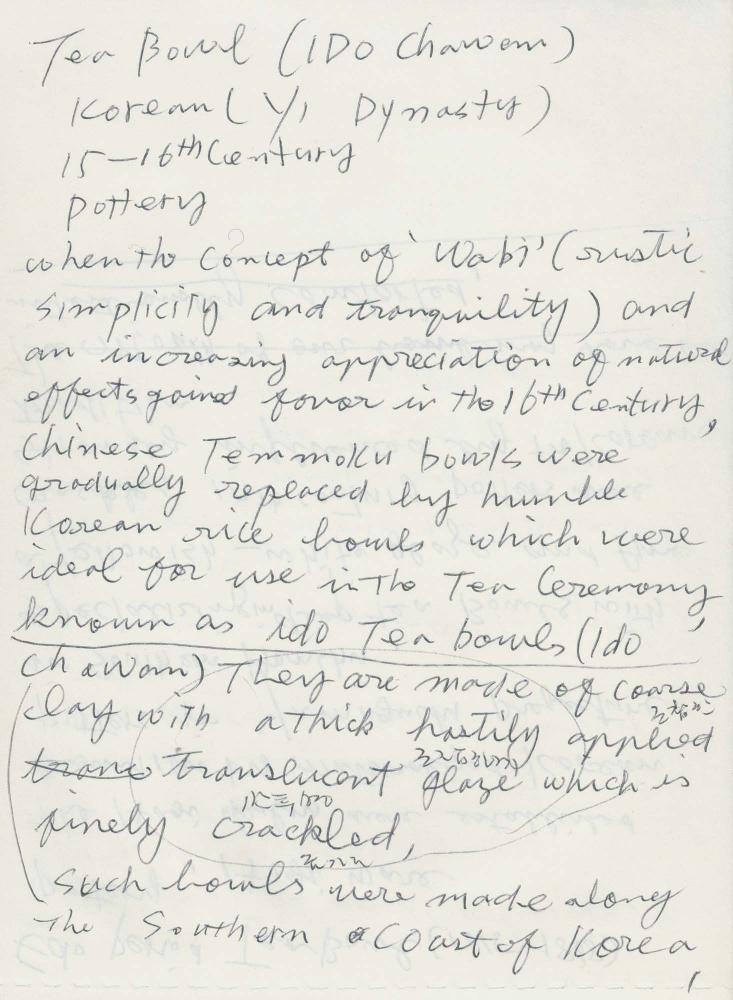 Tea Bowl (IDo Chawan)
Korean (Yi Dynasty)
15-16th Century
Pottery
when the Concept of 'Wabi' (rustic
simplicity and tranquility) and
an increasing appreciation of natural
effects gained favor in the 16th Century,
Chinese Temmoku bowls were
gradually replaced by humble
Korean rice bowls which were
ideal for use in the Tea Ceremony,
known as ido Tea bowls (Ido
Chawan) They are made of coarse
clay with a thick hastily applied
translucent glaze which is
finely crackled,
Such bowls were made along
The Southern Coast of Korea